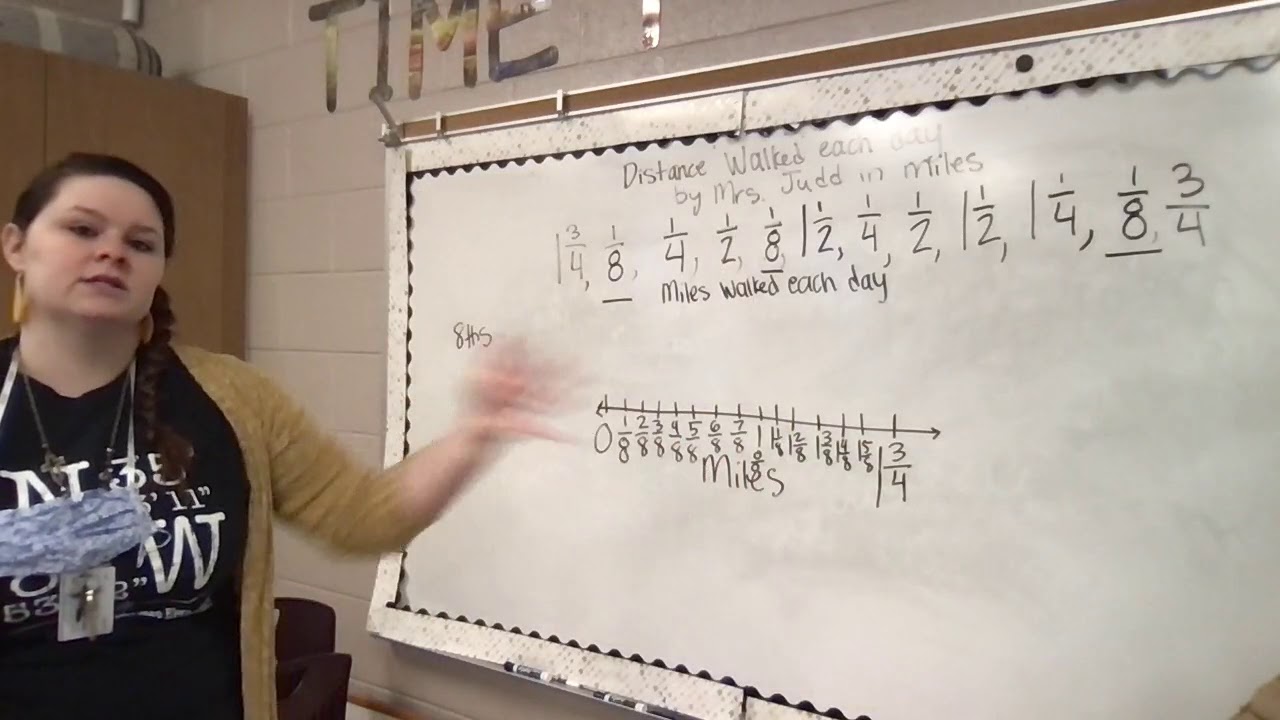 TIME
Distance Walked each day
by Mrs. Judd in miles
1 3/4, 1/8, 1/4, 1/2, 1/8, 1 1/2, 1/4, 1/2, 1 1/2, 1 1/4, 1/8, 3/4
Miles walked each day
8ths
0 1/8 2/8 3/8 4/8 5/8 6/8 7/8 1 0/8 1 1/8 1 2/8 1 3/8 1 4/8 1 5/8 1 3/4
Miles
N 35
11"
W
53